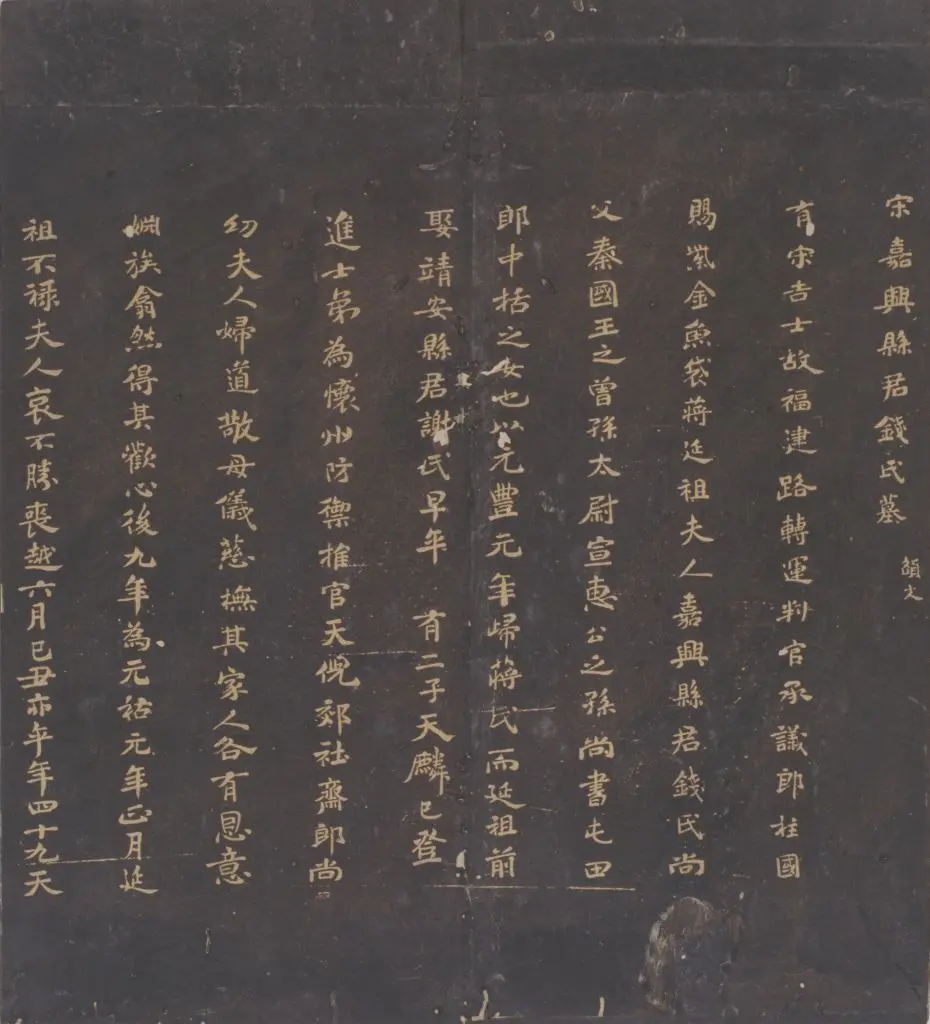 宋嘉興縣君錢氏墓
額文
有宋吉士故福建路轉運判官承議郎柱國
賜紫金魚袋蔣延祖夫人嘉興縣君錢氏尚
父秦國王之曾孫太尉宣惠公之孫尚書屯田
郎中括之女也以元豐元年歸蔣氏而延祖前
娶靖安縣君謝氏早年 有二子天麟已登
進士弟為懷州防禦推官天倪郊社齋郎尚
幼夫人婦道敬母儀慈撫其家人各有恩意
婣族翕然得其歡心後九年為元祐元年正月延
祖不祿夫人哀不勝喪越六月己丑亦卒年四十九天